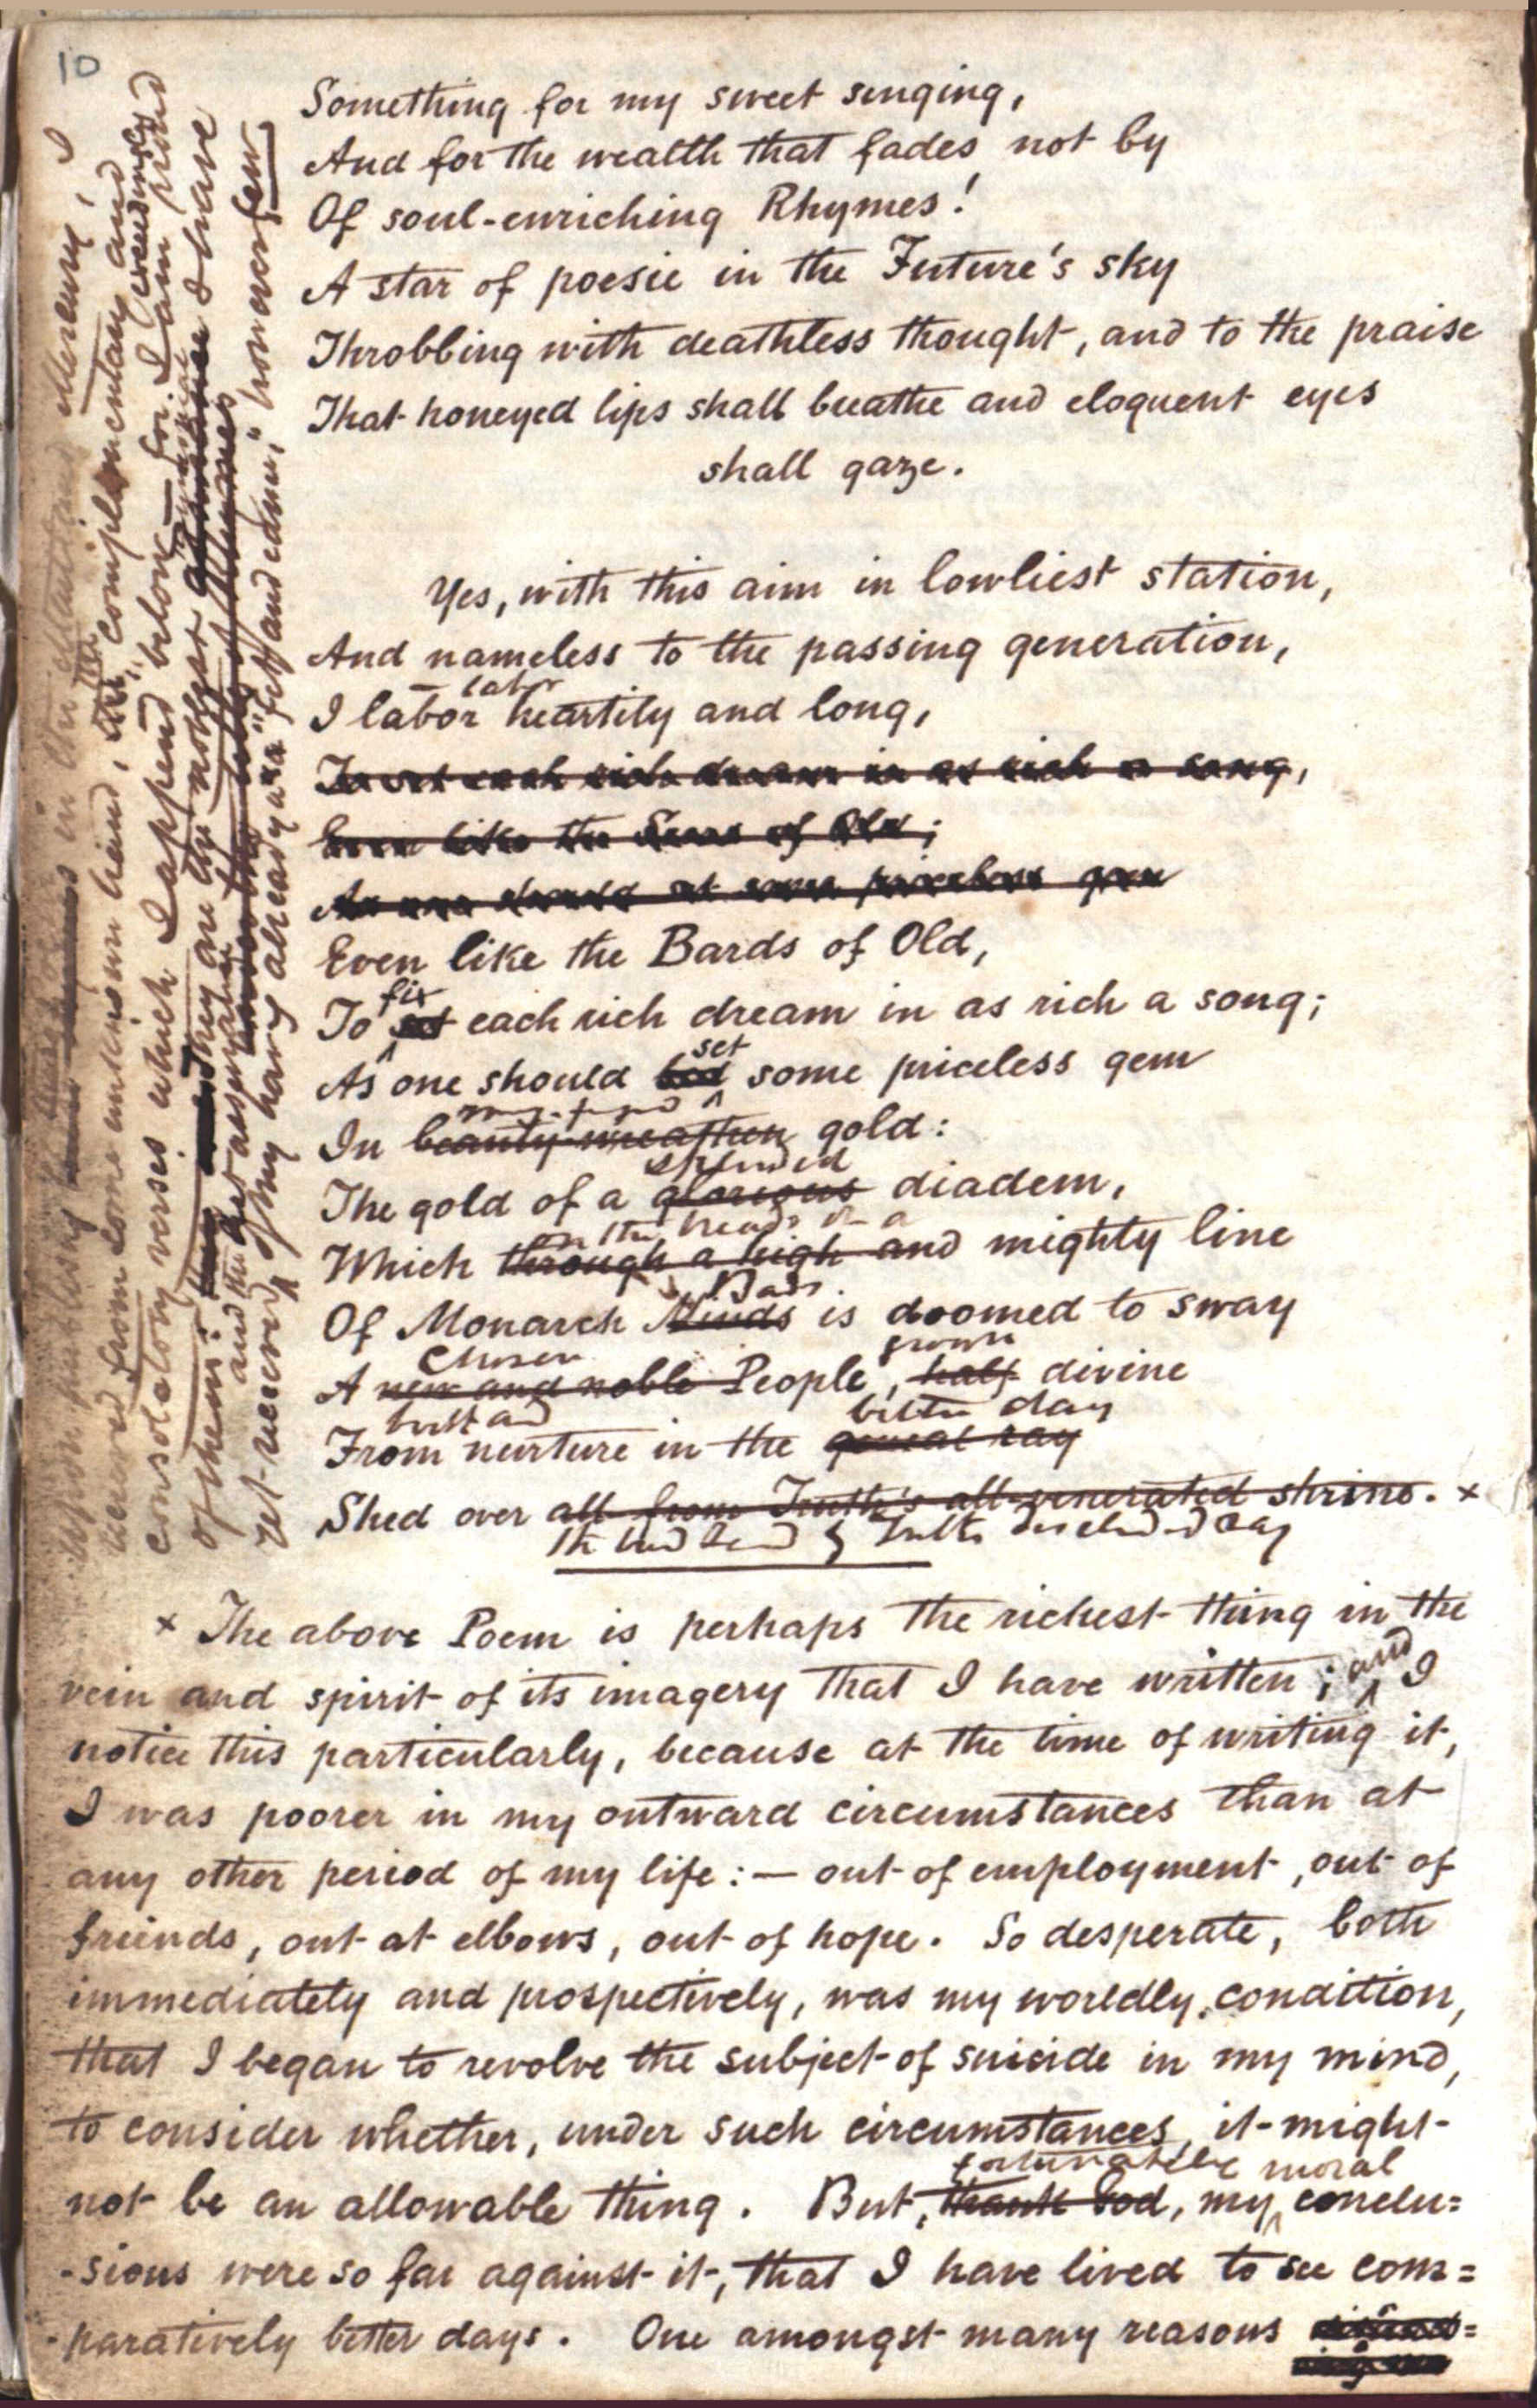 10
Something for my sweet singing,
And for the wealth that fades not by
Of soul-enriching Rhymes!
A star of poesie in the Future's sky
Throbbing with deathless thought, and to the praise
That honeyed lips shall breathe and eloquent eyes
shall gaze.
Yes, with this aim in lowliest station,
And nameless to the passing generation,
labor
I labor heartily and long,
To set each rich dream in as rich a song,
Even like the Seers of Old;
As one should set some priceless gem
Even like the Bards of Old,
fix
To set each rich dream in as rich a song;
set
As one should bed some priceless gem
In beauty-wreathen gold:
splendid
The gold of a glorious diadem,
on the heads of a
Which through a high and mighty line
Bards
Of Monarch Minds is doomed to sway
Chosen grown
A new and noble People, half divine
better day
From nurture in the genial ray
Shed over all from Truth's all-venerated shrine. x
x The above Poem is perhaps the richest thing in the
and
vein and spirit of its imagery that I have written; I
notice this particularly, because at the time of writing it,
I was poorer in my outward circumstances than at
any other period of my life:— out of employment, out of
friends, out at elbows, out of hope. So desperate, both
immediately and prospectively, was my worldly condition,
that I began to revolve the subject of suicide in my mind,
to consider whether, under such circumstances, it might
fortunately moral
not be an allowable thing. But, thank God, my conclu=
-sions were so far against it, that I have lived to see com=
-paratively better days. One amongst many reasons
received from some unknown hand, the complementary and
consolatory verses which I append below — for I am proud
of them: They are the noblest I have
yet received, my having already a "fit audience," however few.